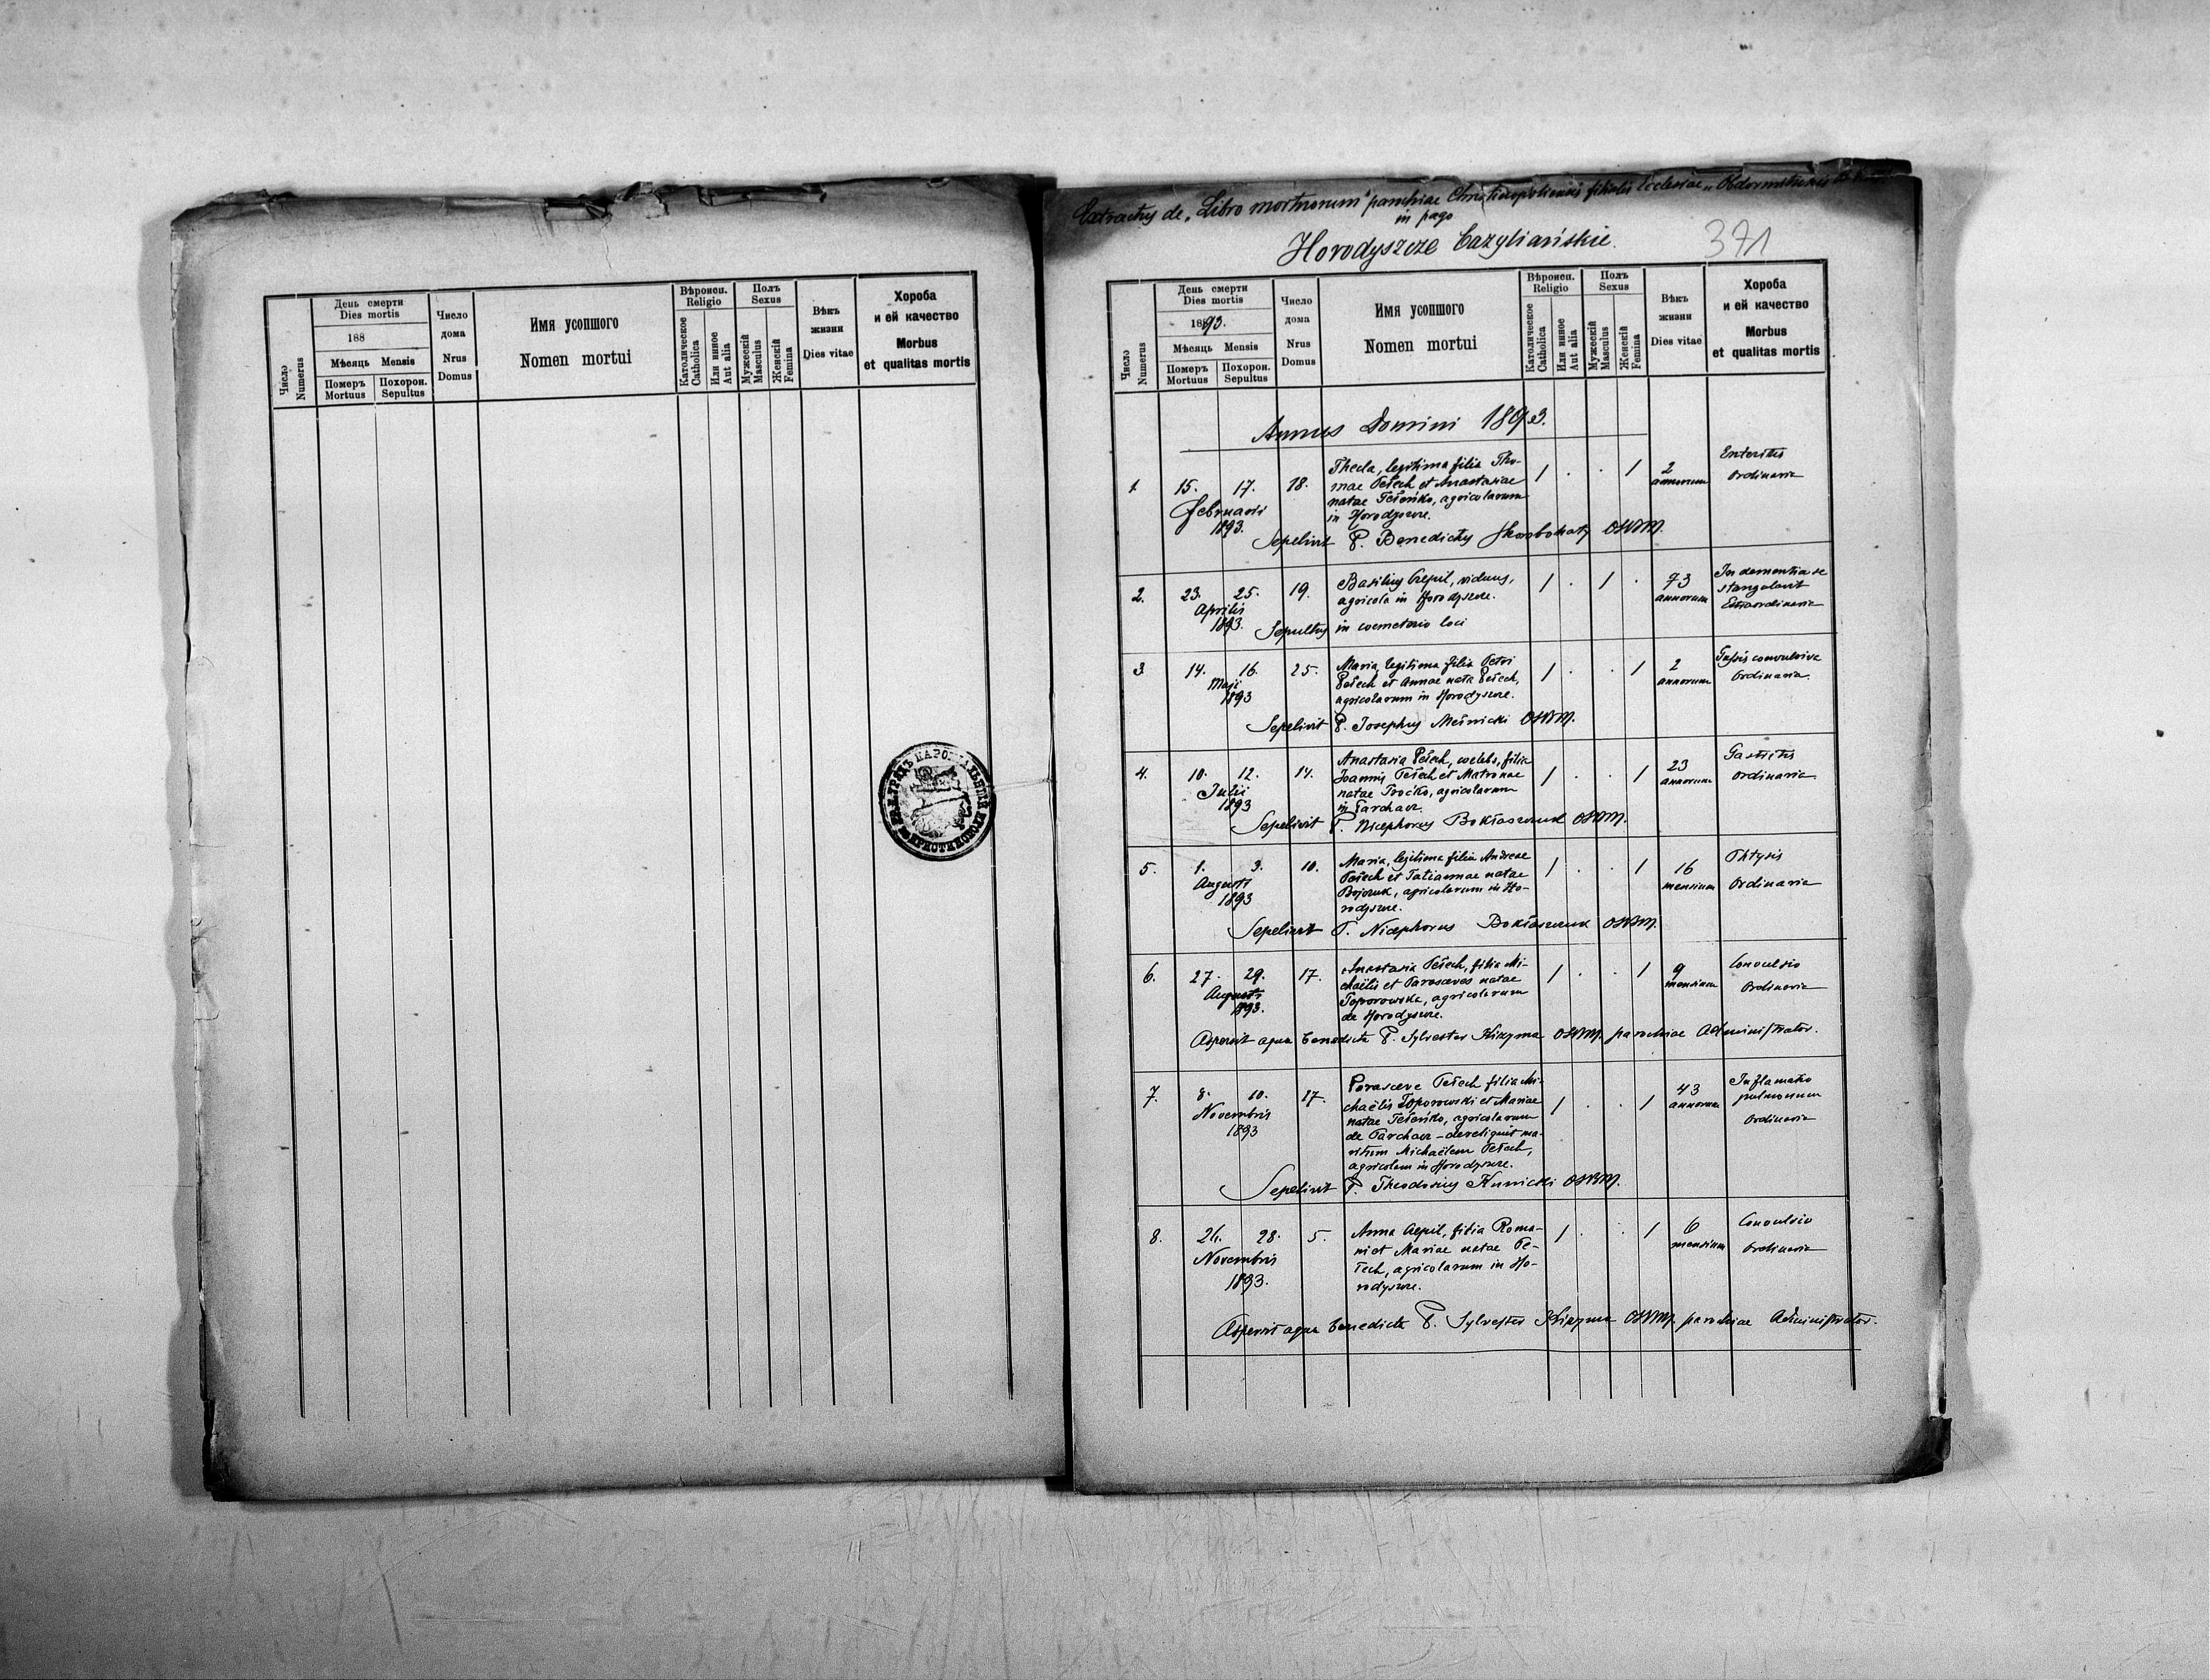 Число
Numerus
День смерти
Dies mortis
188
Мѣсяць Mensis
Померъ
Mortuus
Похорон.
Sepultus
Число
дома
Nrus
Domus
Имя усопшого
Nomen mortui
Вѣроисп.
Religio
Католическое
Catholica
Или инное
Aut alia
Полъ
Sexus
Мужескій
Masculus
Женскій
Femina
Вѣкъ
жизни
Dies vitae
Хороба
и ей качество
Morbus
et qualitas mortis
Extractus de „Libro mortuorum" parochiae Christinopoliensis filialis Ecclesiae
in pago
Horodyszcze bazyliańskie.
371
Число
Numerus
День смерти
Dies mortis
1893.
Мѣсяць Mensis
Померъ
Mortuus
Похорон.
Sepultus
Число
дома
Nrus
Domus
Имя усопшого
Nomen mortui
Вѣроисп.
Religio
Католическое
Catholica
Или инное
Aut alia
Полъ
Sexus
Мужескій
Masculus
Женскій
Femina
Вѣкъ
жизни
Dies vitae
Хороба
и ей качество
Morbus
et qualitas mortis
Annus Domini 1893.
1. 15. 17. Februarii 1893. 18.
Thecla, legitima filia Tho-
mae Pełech et Anastasiae
natae Pełeńko, agricolarum
in Horodyszcze.
/ . . / 2 annorum
Enteritis
Ordinaria
Sepelivit P. Benedictus OSBM.
2. 23. 25. Aprilis 1893. 19.
Basilius Cepil, viduus,
agricola in Horodyszcze.
/ . / . 73 annorum
In dementia se
stangulavit
Extraordinaria
Sepultus in coemeterio loci
3 14. 16. Maji 1893 25.
Maria, legitima filia Petri
Pełech et Annae nata Pełech,
agricolarum in Horodyszcze.
/ . . / 2 annorum
Tussis convulsiva
Ordinaria
Sepelivit P. Josephus Meśnicki OSBM.
4. 10. 12. Julii 1893 14.
Anastasia Pełech, coelebs, filia
Joannis Pełech et Matronae
natae Troćko, agricolarum
in Parchacz
/ . . / 23 annorum
Gastritis
Ordinaria
Sepelivit P. Nicephorus Bokłaszczuk OSBM.
5. 1. 3. Augusti 1893 10.
Maria, legitima filia Andreae
Pełech et Tatiannae natae
Bojczuk, agricolarum in Ho-
rodyszcze.
/ . . / 16 mensium
Phtysis
Ordinaria
Sepelivit P. Nicephorus Bokłaszczuk OSBM.
6. 27. 29. Augusti 1893. 17.
Anastasia Pełech, filia Mi-
chaëlis et Parasceves natae
Toporowska, agricolarum
de Horodyszcze.
/ . . / 9 mensium
Convulsio
Ordinaria
Aspersit aqua benedicta P. Sylvester Kizyma OSBM. parochiae Administrator.
7. 8. 10. Novembris 1893 17.
Parasceve Pełech filia Mi-
chaëlis Toporowski et Mariae
natae Pełeńko, agricolarum
de Parchacz – dereliquit ma-
ritum Michaëlem Pełech,
agricolam in Horodyszcze.
/ . . / 43 annorum
Inflamatio
pulmonum
Ordinaria
Sepelivit P. Theodosius Kunicki OSBM.
8. 26. 28. Novembris 1893. 5.
Anna Cepil, filia Roma-
ni et Mariae natae Pe-
łech, agricolarum in Ho-
rodyszcze.
/ . . / 6 mensium
Convulsio
Ordinaria
Aspersit aqua benedicta P. Sylvester Kizyma OSBM. parochiae Administrator.